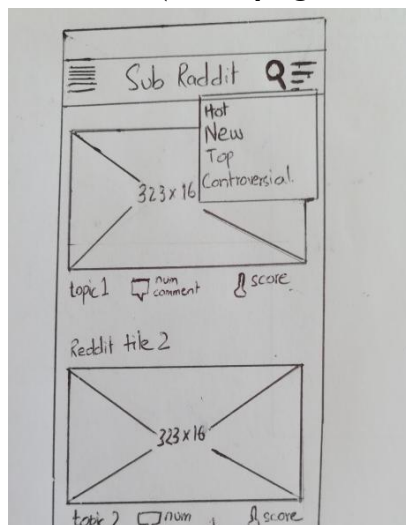 Sub Raddit
Hot
New
Top
Controversial.
323x16
topic 1 num comment score
Reddit title 2
323x16
topic 2 num score